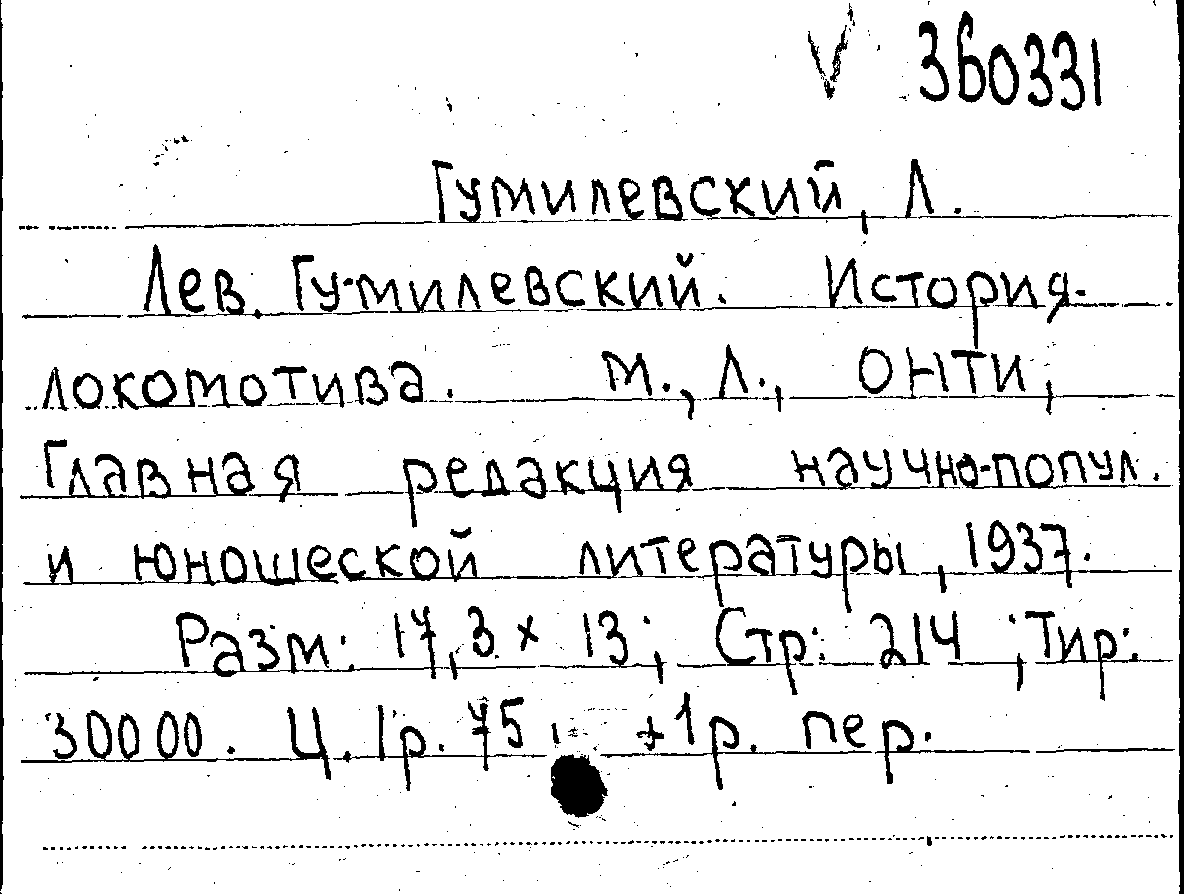 V 360331
Гумилевский, Л.
Лев. Гумилевский. История
локомотива. М., Л., ОНТИ,
Главная редакция научно-попул.
и юношеской литературы, 1937.
Разм: 17,3 x 13; Стр: 214; Тир:
30000. Ц. 1р. 75 +1р. пер.